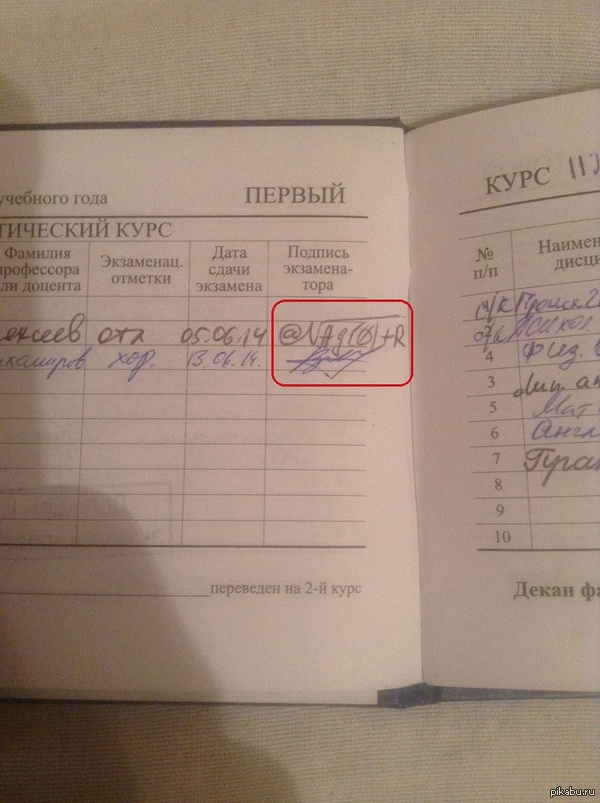 учебного года ПЕРВЫЙ
ТИЧЕСКИЙ КУРС
Фамилия профессора или доцента
Экзаменац. отметки
Дата сдачи экзамена
Подпись экзамена-тора
отл 05.06.14
хор. 13.06.14.
переведен на 2-й курс
КУРС
№ п/п
Наимен дисци
4 Физ.
3
5 Мат
6 Англ
7
8
9
10
Декан фа
pikabu.ru